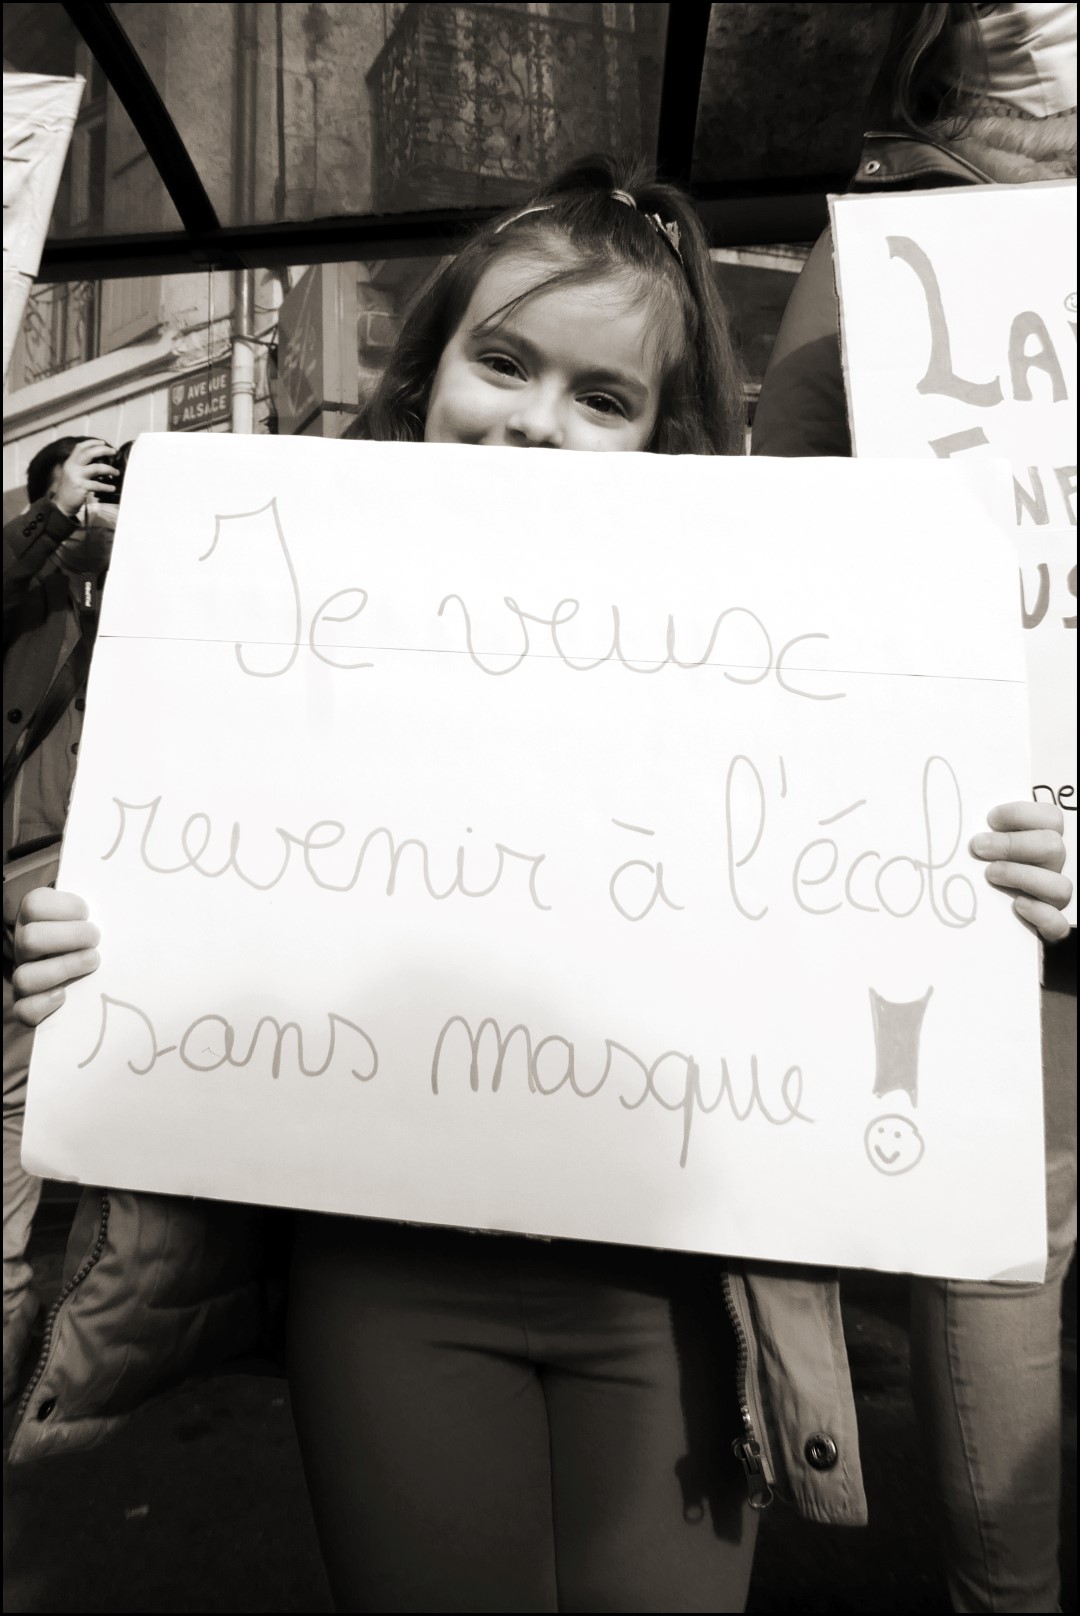 AVENUE
D'ALSACE
Je veux
revenir à l'école
sans masque !
LAI
ENE
US
ne